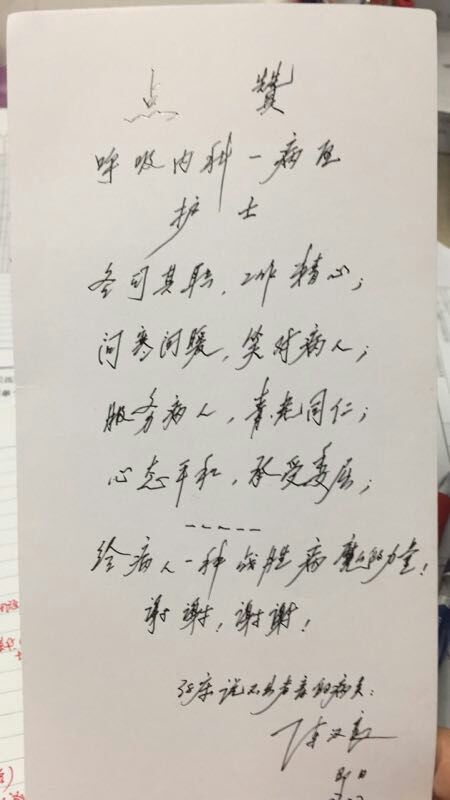 点赞
呼吸内科一病区
护士
各司其职，工作精心；
问寒问暖，笑对病人；
服务病人，意志同仁；
心态平和，承受委屈；
------
给病人一种战胜病魔的力量！
谢谢！谢谢！
床说不出声音的病员：